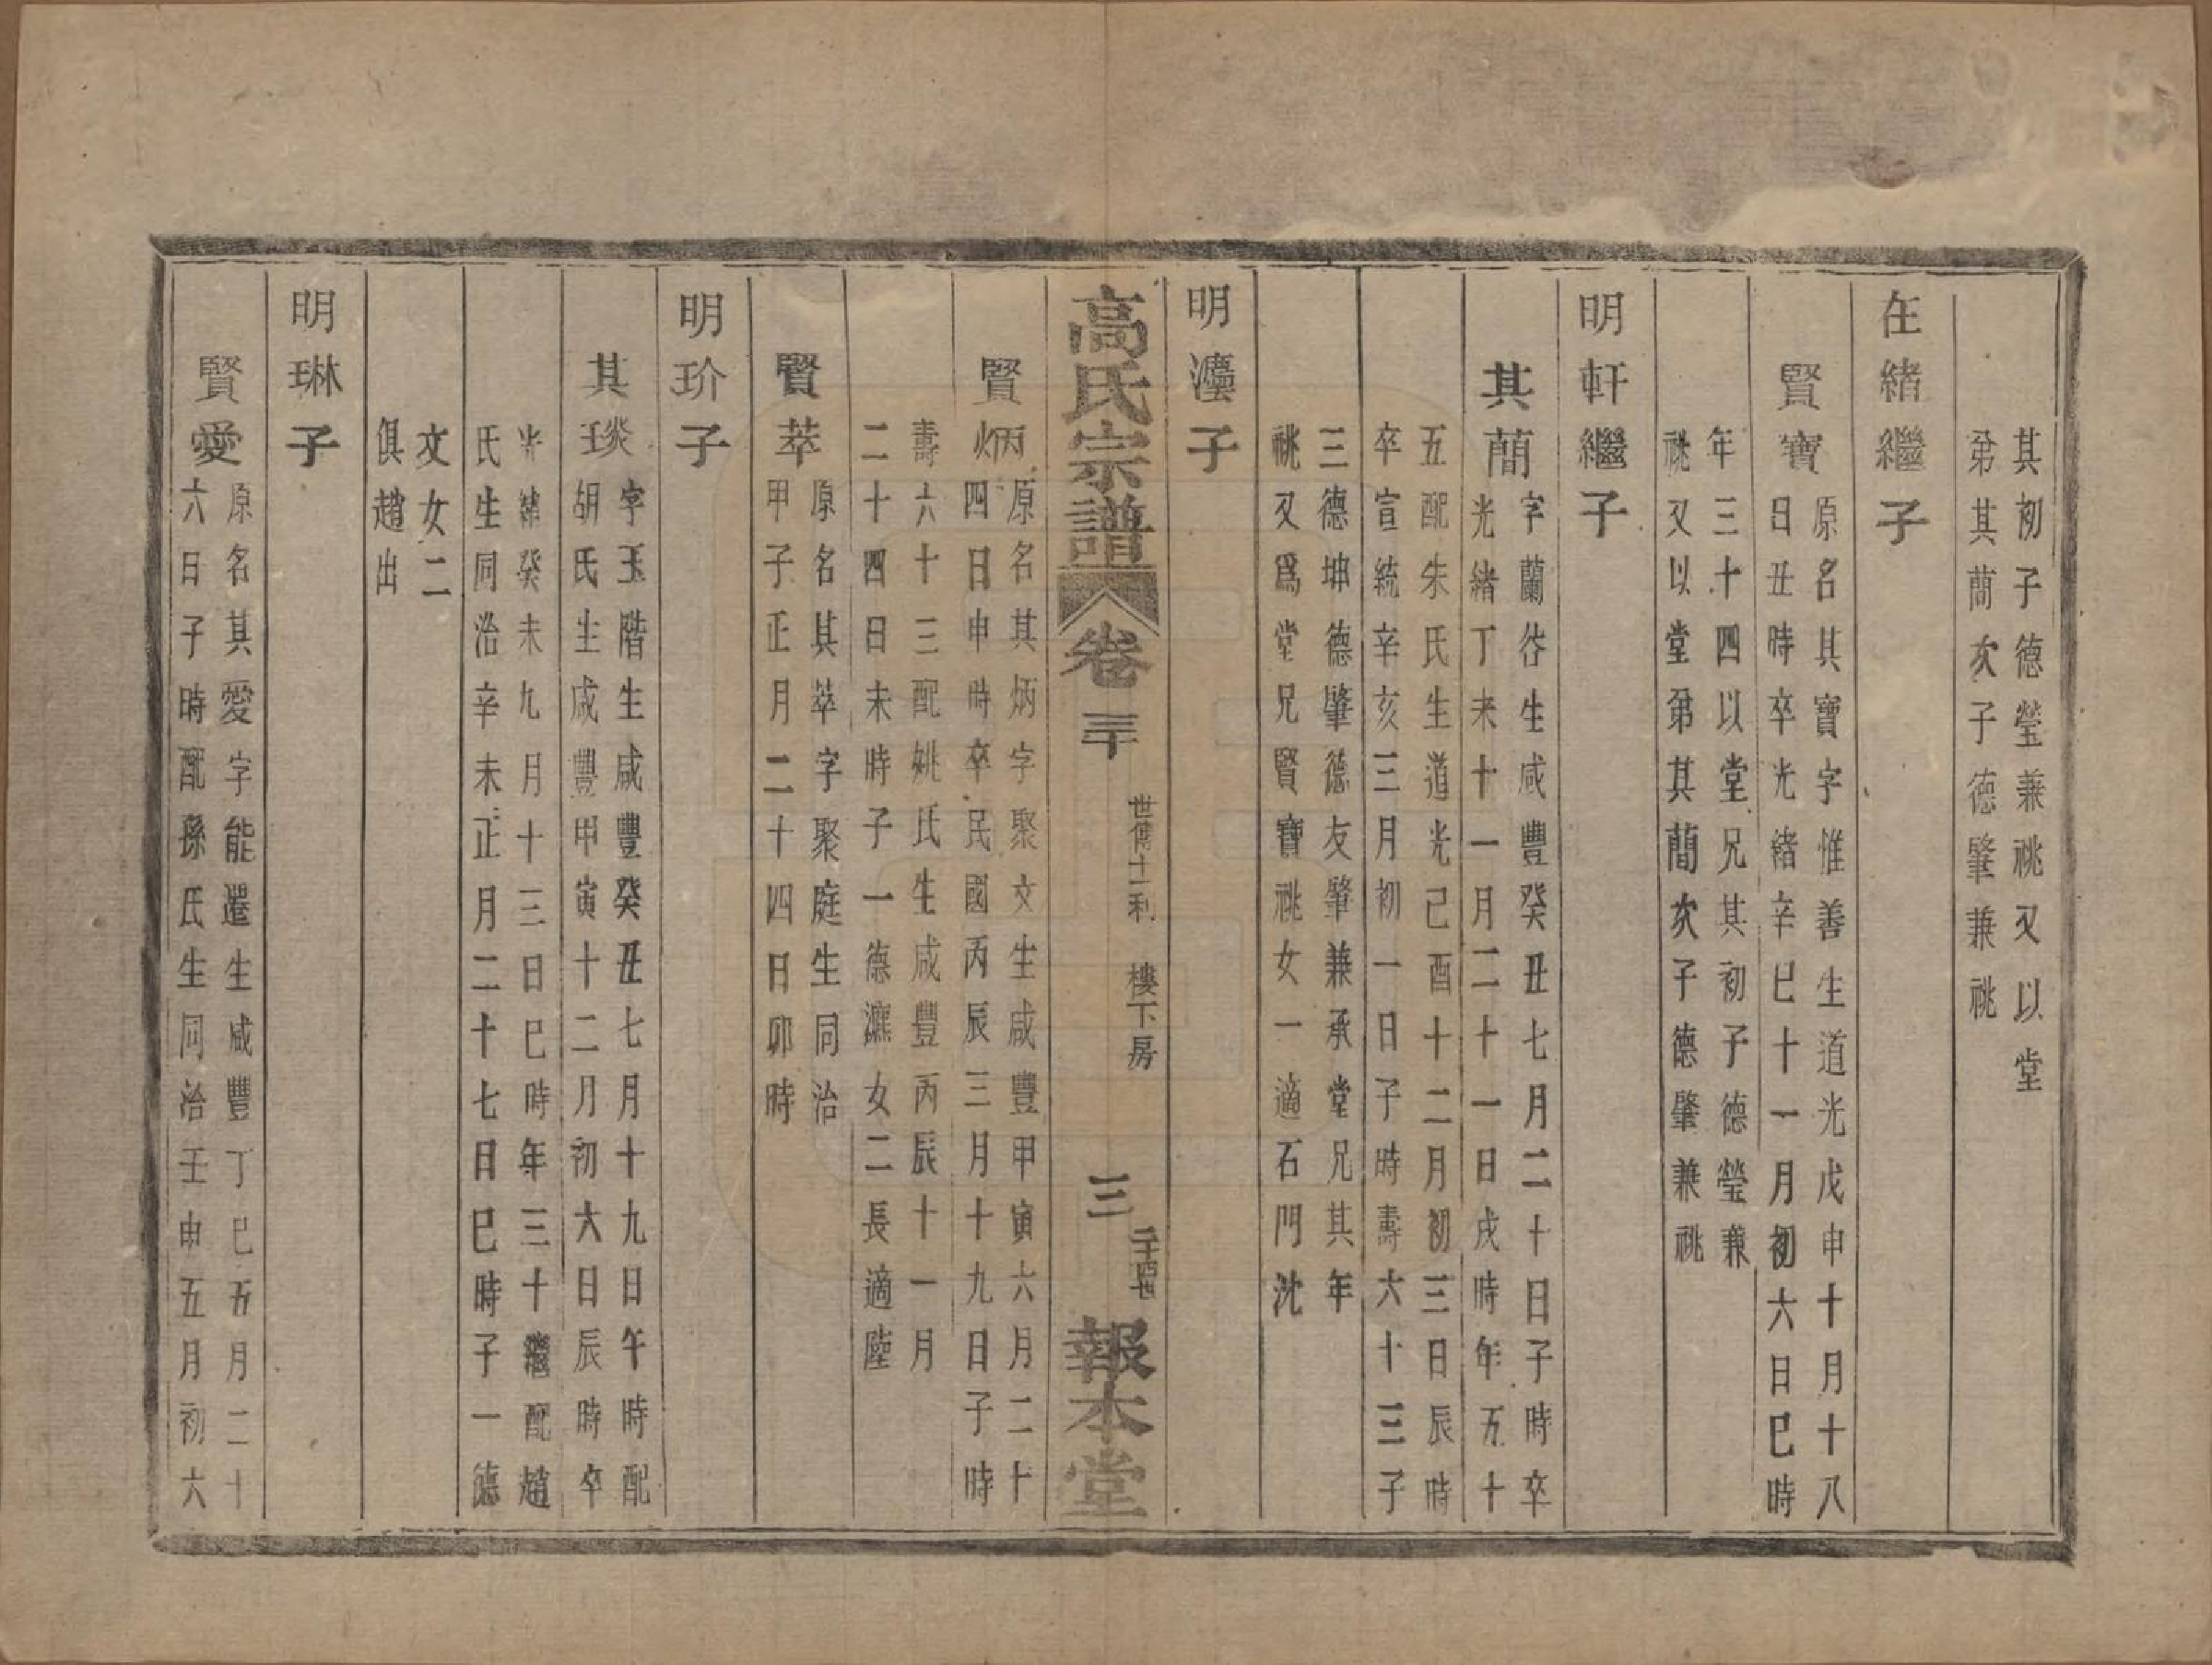 其初子德瑩兼祧又以堂
弟其蕳次子德肇兼祧
在緒繼子
賢寶
原名其寶字惟善生道光戊申十月十八
日丑時卒光緒辛巳十一月初六日巳時
年三十四以堂兄其初子德瑩兼
祧又以堂弟其蕳次子德肇兼祧
明軒繼子
其蕳
字蘭谷生咸豐癸丑七月二十日子時卒
光緒丁未十一月二十一日戌時年五十
五配朱氏生道光己酉十二月初三日辰時
卒宣統辛亥三月初一日子時壽六十三子
三德坤德肇德友肇兼承堂兄其年
祧又爲堂兄賢寶祧女一適石門沈
明瀍子
高氏宗譜
卷三十
世傳十一利 樓下房
三
二十四世
報本堂
賢炳
原名其炳字聚文生咸豐甲寅六月二十
四日申時卒民國丙辰三月十九日子時
壽六十三配姚氏生咸豐丙辰十一月
二十四日未時子一德 女二長適陸
賢萃
原名其萃字聚庭生同治
甲子正月二十四日卯時
明玠子
其琰
字玉階生咸豐癸丑七月十九日午時配
胡氏生咸豐甲寅十二月初六日辰時卒
光緒癸未九月十三日巳時年三十繼配趙
氏生同治辛未正月二十七日巳時子一德
文女二
俱趙出
明琳子
賢愛
原名其愛字能遷生咸豐丁巳五月二十
六日子時配孫氏生同治壬申五月初六